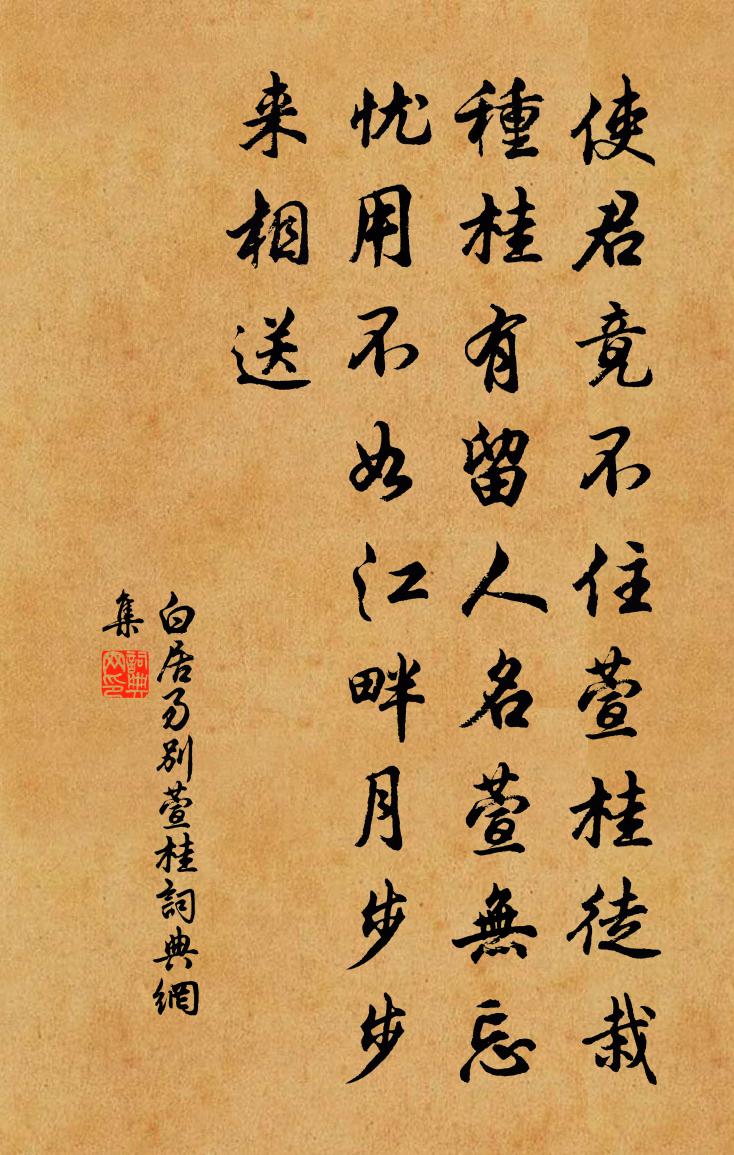 使君竟不住萱桂徒栽
種桂有留人名萱無忘
忧用不如江畔月步步
来相送
白居易别萱桂詞典網
集
詞典網印